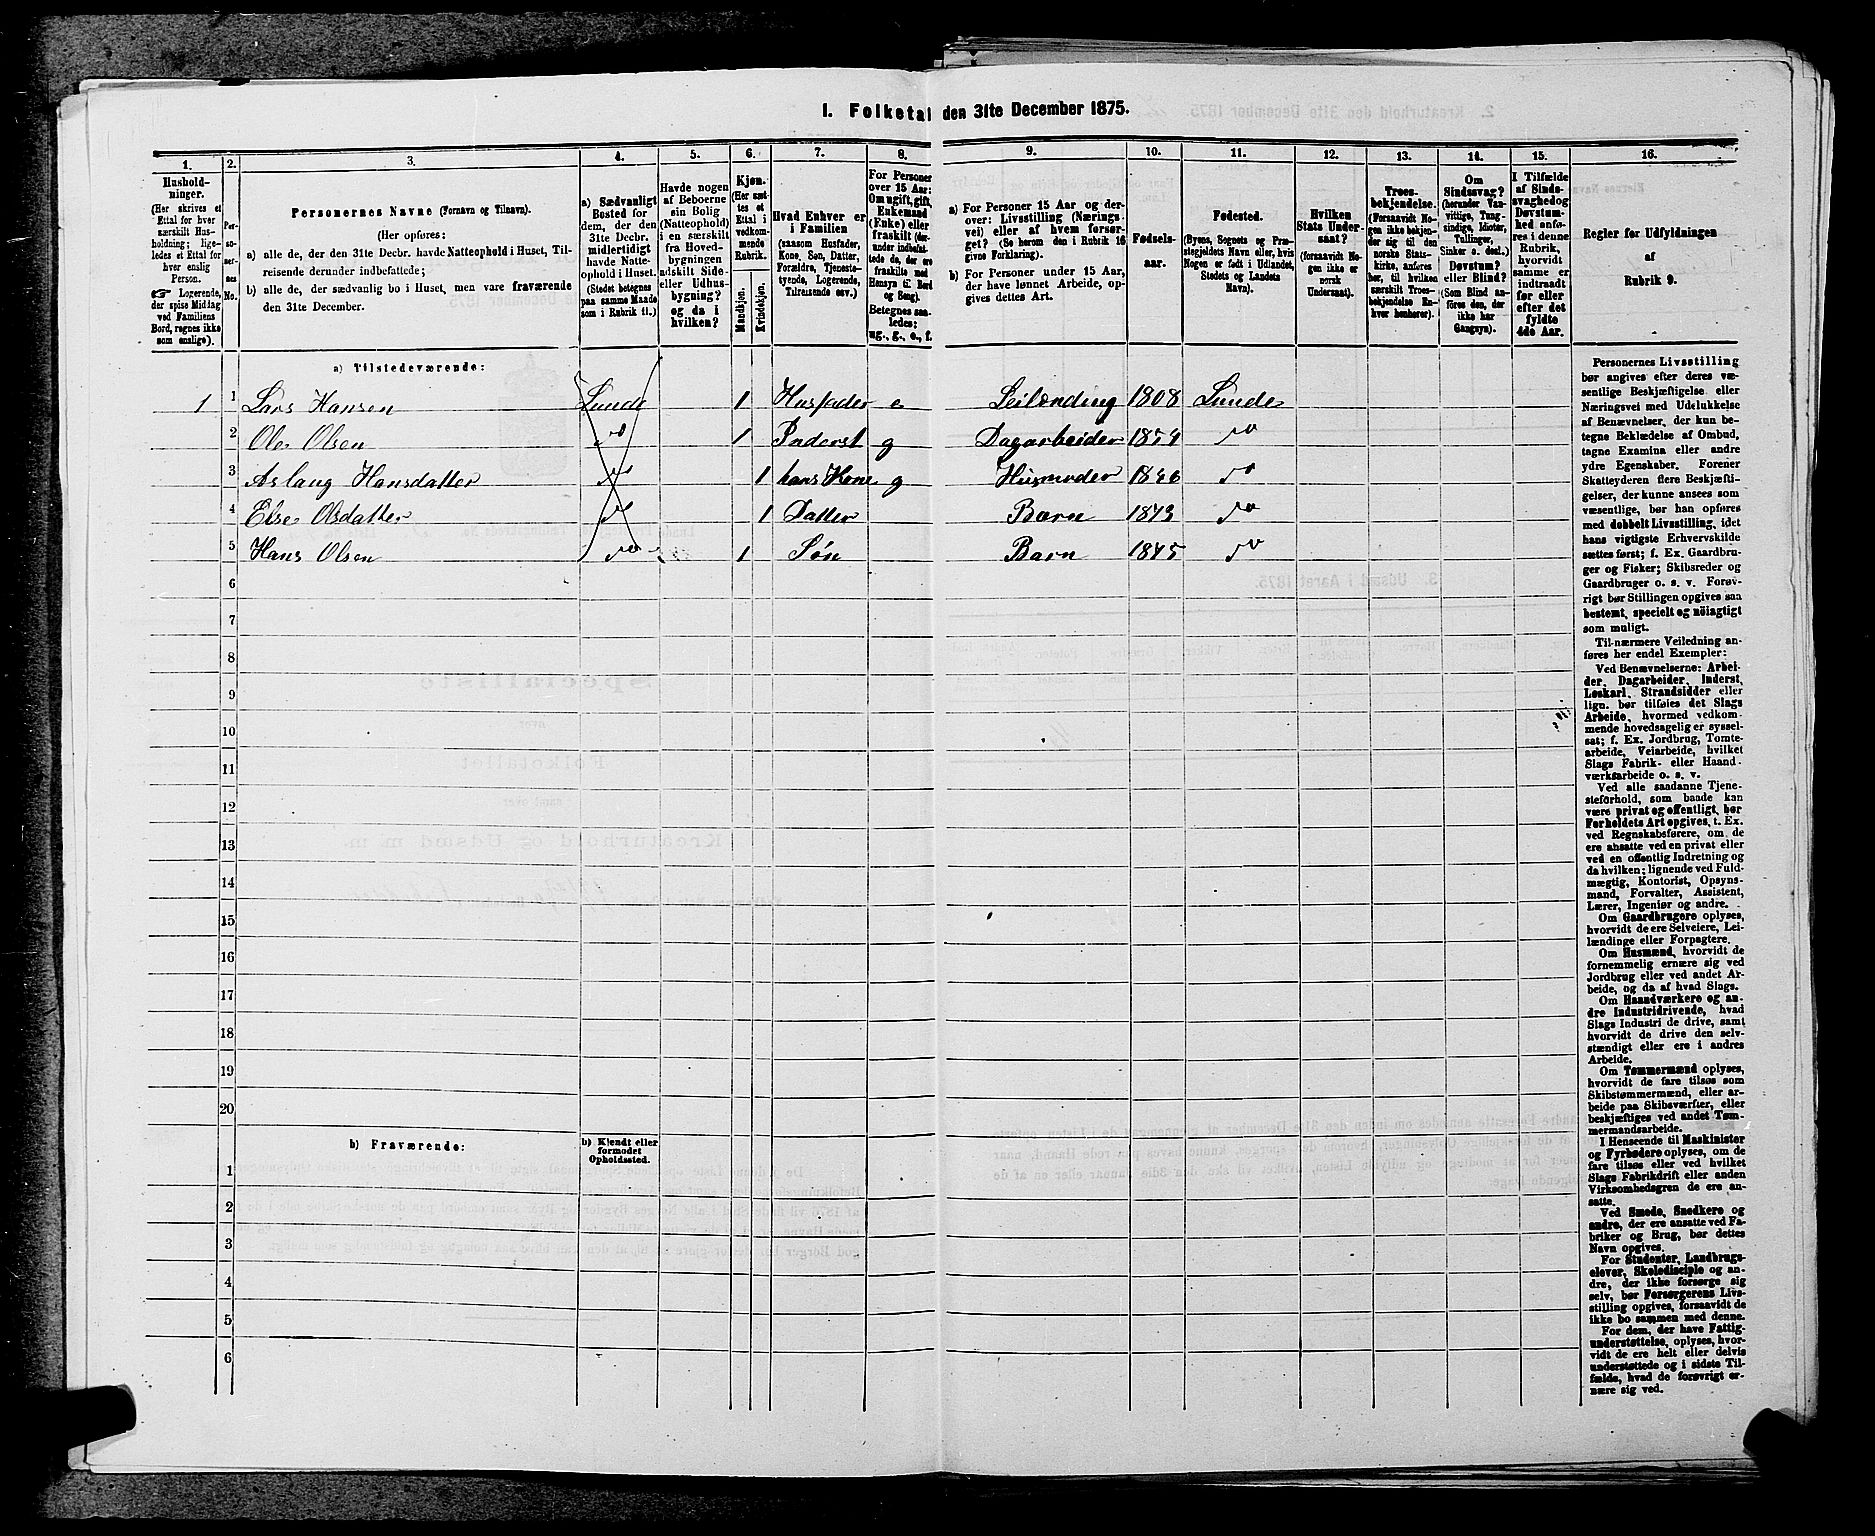 I. Folketal den 31te December 1875.
1.
2.
3.
4.
5.
6.
7.
8.
9.
10.
11.
12.
13.
14.
15.
16.
Husholdninger.
(Her skrives et
Ettal for hver
særskilt Husholdning;
ligeledes et Ettal for
hver enslig
Person.
☞ Logerende,
der spise Middag
ved Familiens
Bord, regnes ikke
som enslige).
Personernes No.
Personernes Navne (Fornavn og Tilnavn).
(Her opføres:
a) alle de, der den 31te Decbr. havde Natteophold i Huset, Tilreisende derunder indbefattede;
b) alle de, der sædvanlig bo i Huset, men vare fraværende
den 31te December.
a) Sædvanligt
Bosted for
dem, der den
31te Decbr.
midlertidigt
havde Natteophold i Huset.
(Stedet betegnes
paa samme Maade
som i Rubrik 11.)
Havde nogen
af Beboerne
sin Bolig
(Natteophold)
i en særskilt
fra Hovedbygningen
adskilt Side-
eller Udhusbygning?
og da i
hvilken?
Kjøn.
(Her sættes et
Ettal i
vedkommende
Rubrik.
Mandkjøn.
Kvindekjøn.
Hvad Enhver er
i Familien
(saasom Husfader,
Kone, Søn, Datter,
Forældre, Tjenestetyende, Logerende,
Tilreisende osv.)
For Personer
over 15 Aar:
Om ugift, gift,
Enkemand
(Enke) eller
fraskilt (derunder indbefattede de, der ere
fraskilte med
Hensyn til Bord
og Seng).
Betegnes saaledes:
ug., g., e., f.
a) For Personer 15 Aar og derover: Livsstilling (Næringsvei) eller af hvem forsørget? (Se herom den i Rubrik 16
givne Forklaring).
b) For Personer under 15 Aar,
der have lønnet Arbeide, opgives dettes Art.
Fødselsaar.
Fødested.
(Byens, Sognets og Præstegjeldets Navn eller, hvis
Nogen er født i Udlandet,
Stedets og Landets
Navn).
Hvilken
Stats Undersaat?
(forsaavidt Nogen ikke er
norsk
Undersaat).
Troesbekjendelse.
(Forsaavidt Nogen ikke bekjender sig til den
norske Statskirke, anføres
her, til hvilken
særskilt Troesbekjendelse Enhver henhører).
Om
Sindssvag?
(herunder Vanvittige, Tungsindige, Idioter,
Tullinger,
Sinker o. desl.)
Døvstum?
eller Blind?
(Som Blind anføres den, der
ikke har
Gangsyn).
I Tilfælde
af Sindssvaghed og
Døvstumhed anføres i denne
Rubrik,
hvorvidt
samme er
indtraadt
før eller
efter det
fyldte
4de Aar.
Regler for Udfyldningen
af
Rubrik 9.
a) Tilstedeværende:
1 1 Lars Hansen Lunde 1 Husfader e Leilænding 1808 Lunde
2 Ole Olsen do 1 Inderst g Dagarbeider do
3 Aslaug Hansdatter do 1 hans Kone g Husmoder do
4 Else Olsdatter do 1 Datter Barn do
5 Hans Olsen do 1 Søn Barn do
6
7
8
9
10
11
12
13
14
15
16
17
18
19
20
b) Fraværende:
b) Kjendt eller
formodet
Opholdssted.
1
2
3
4
5
6
Personernes Livsstilling
bør angives efter deres væsentlige Beskjæftigelse eller
Næringsvei med Udelukkelse
af Benævnelser, der kun betegne Beklædelse af Ombud,
tagne Examina eller andre
ydre Egenskaber. Forener
Skatteyderen flere Beskjæftigelser, der kunne ansees som
væsentlige, bør han opføres
med dobbelt Livsstilling, idet
hans vigtigste Erhvervskilde
sættes først; f. Ex. Gaardbruger og Fisker; Skibsreder og
Gaardbruger o. s. v. Forøvrigt bør Stillingen opgives saa
bestemt, specielt og nöiagtigt
som muligt.
Til nærmere Veiledning anføres her endel Exempler:
Ved Benævnelserne: Arbeider, Dagarbeider, Inderst,
Løskarl, Strandsidder eller
lign. bør tilføies det Slags
Arbeide, hvormed vedkommende hovedsagelig er sysselsat; f. Ex. Jordbrug, Tomtearbeide, Veiarbeide, hvilket
Slags Fabrik- eller Haandværksarbeide o. s. v.
Ved alle saadanne Tjenesteforhold, som baade kan
være privat og offentligt, bør
Forholdets Art opgives, t. Ex.
ved Regnskabsførere, om de
ere ansatte ved en privat eller
ved en offentlig Indretning og
da hvilken; lignende ved Fuldmægtig, Kontorist, Opsynsmand, Forvalter, Assistent,
Lærer, Ingeniør og andre.
Om Gaardbrugere oplyses,
hvorvidt de ere Selveiere, Leilændinge eller Forpagtere.
Om Husmænd, hvorvidt de
fornemmelig ernære sig ved
Jordbrug eller ved andet Arbeide, og da af hvad Slags.
Om Haandværkere og andre Industridrivende, hvad
Slags Industri de drive, samt
hvorvidt de drive den selvstændigt eller ere i andres
Arbeide.
Om Tømmermænd oplyses,
hvorvidt de fare tilsøs som
Skibstømmermænd, eller arbeide paa Skibsværfter, eller
beskjæftiges ved andet Tømmermandsarbeide.
I Henseende til Maskinister
og Fyrbødere oplyses, om de
fare tilsøs eller ved hvilket
Slags Fabrikdrift eller anden
Virksomhedsgren de ere ansatte.
Ved Smede, Snedkere og
andre, der ere ansatte ved Fabriker og Brug, bør dettes
Navn opgives.
For Studenter, Landbrugselever, Skoledisciple og andre, der ikke forsørge sig
selv, bør Forsørgerens Livsstilling opgives, forsaavidt de
ikke bo sammen med denne.
For dem, der have Fattigunderstøttelse, oplyses, hvorvidt de ere helt eller delvis
understøttede og i sidste Tilfælde, hvad de forøvrigt ernære sig ved.